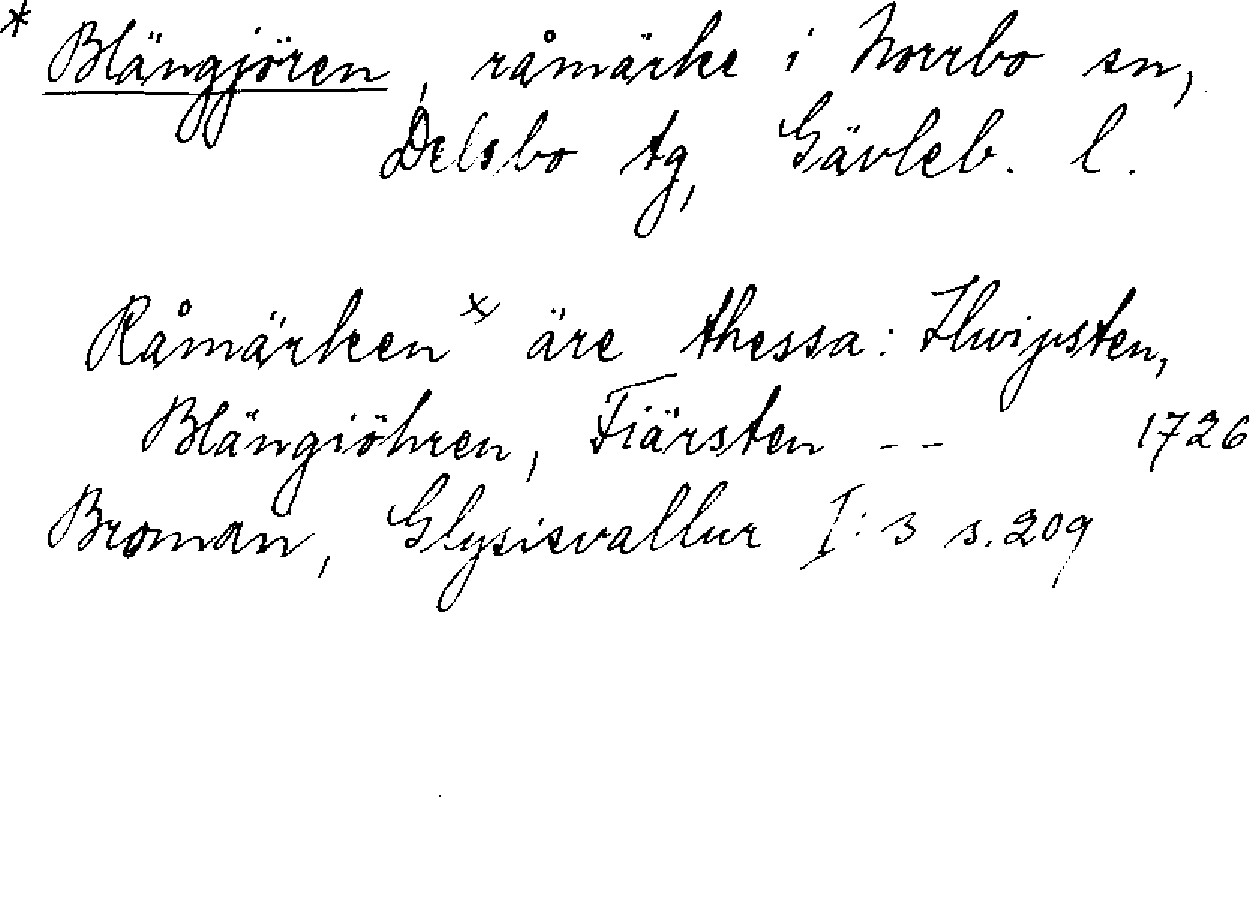 * Blängjören, råmärke i Norrbo sn,
Delsbo tg, Gävleb. l.
Råmärken x äre thessa:
Blängiöhren, Fiärsten -- 1726
Broman, Glysisvallur I:3 s. 209